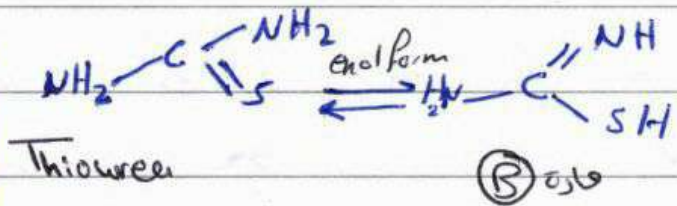 NH2 C NH2 S enol form H2N C NH SH
Thiourea B مادة